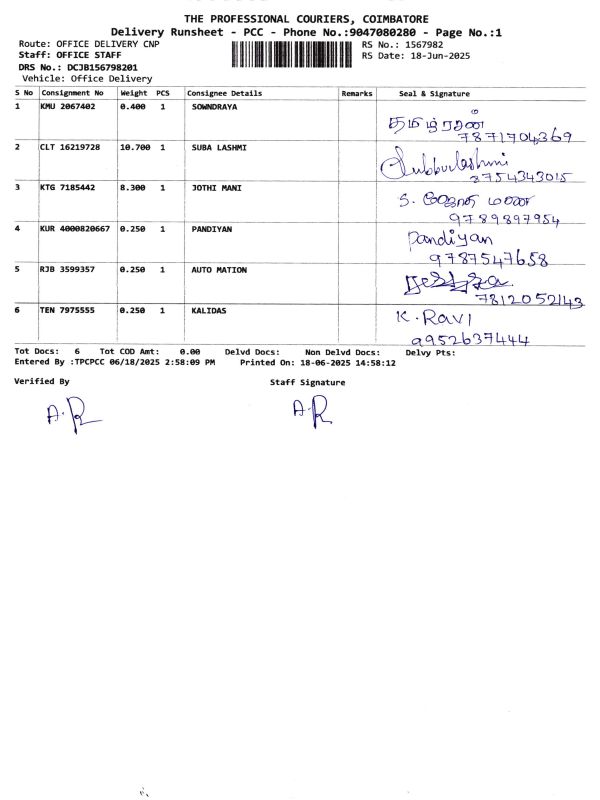 THE PROFESSIONAL COURIERS, COIMBATORE
Delivery Runsheet - PCC - Phone No.:9047080280 - Page No.:1
Route: OFFICE DELIVERY CNP
RS No.: 1567982
Staff: OFFICE STAFF
RS Date: 18-Jun-2025
DRS No.: DCJB156798201
Vehicle: Office Delivery
S No Consignment No Weight PCS Consignee Details Remarks Seal & Signature
1 KMU 2067402 0.400 1 SOWNDRAYA
7871704369
2 CLT 16219728 10.700 1 SUBA LASHMI
Subbulashmi
2754343015
3 KTG 7185442 8.300 1 JOTHI MANI
S. ஜோதி மணி
9789897954
4 KUR 4000820667 0.250 1 PANDIYAN
Pandiyan
9787547658
5 RJB 3599357 0.250 1 AUTO MATION
7812052143
6 TEN 7975555 0.250 1 KALIDAS
K. Ravi
9952637444
Tot Docs: 6 Tot COD Amt: 0.00 Delvd Docs: Non Delvd Docs: Delvy Pts:
Entered By :TPCPCC 06/18/2025 2:58:09 PM Printed On: 18-06-2025 14:58:12
Verified By Staff Signature
A.R A.R